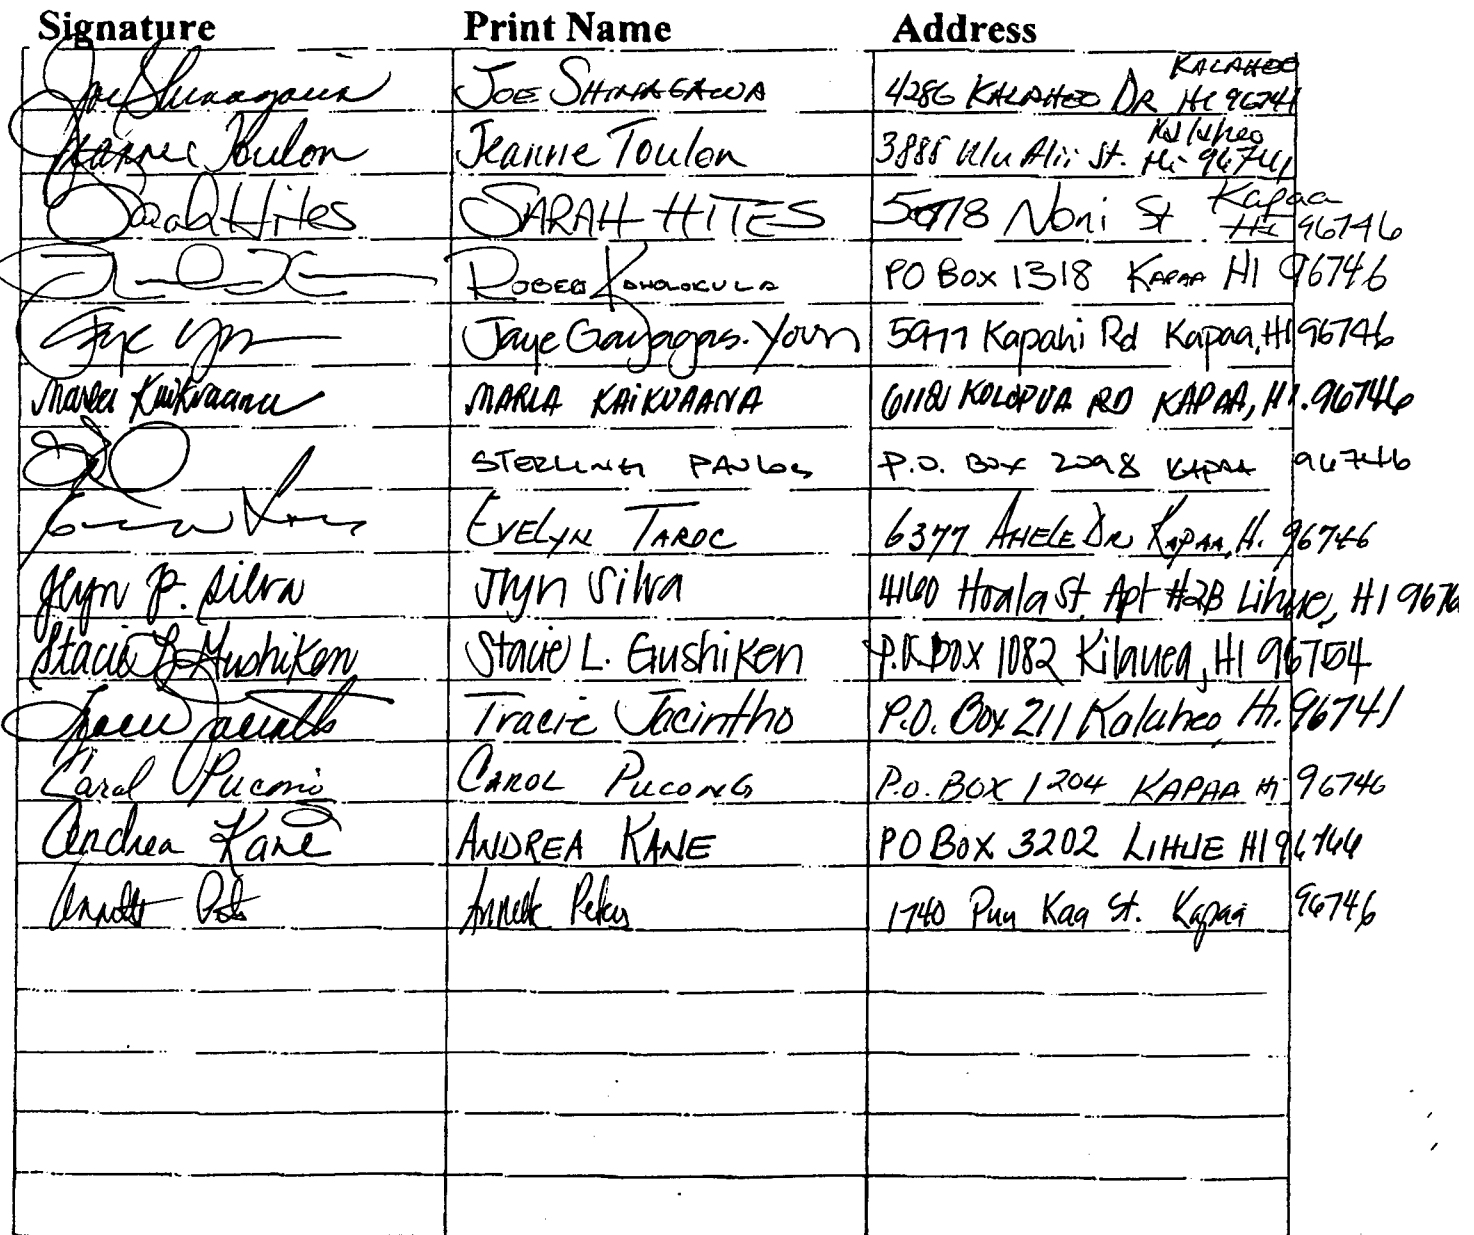 Signature Print Name Address
Joe Shinagawa JOE SHINAGAWA 4286 KALAHEO DR KALAHEO HI 96741
Jeanne Toulon Jeanne Toulon 3885 Ulu Alii St. Kalaheo Hi 96741
Sarah Hites SARAH HITES 5078 Noni St Kapaa Hi 96746
ROBERT KAHOLOKULA PO Box 1318 KAPAA HI 96746
Jaye Jaye Gayagas-Youn 5977 Kapahi Rd Kapaa, HI 96746
Marla Kaikuaana MARLA KAIKUAANA 6118 KOLOPUA RD KAPAA, HI. 96746
STERLING P.O. BOX 2098 KAPAA 96746
EVELYN TAROC 6377 AHELE DR KAPAA, HI. 96746
Jlyn P. Silva Jlyn Silva 4160 Hoala St. Apt #2B Lihue, HI 9676
Stacie L. Gushiken Stacie L. Gushiken P.O. BOX 1082 Kilauea, HI 96754
Tracie Jacintho Tracie Jacintho P.O. Box 211 Kalaheo, Hi. 96741
Carol Pucong CAROL PUCONG P.O. BOX 1204 KAPAA HI 96746
Andrea Kane ANDREA KANE PO BOX 3202 LIHUE HI 96766
Annette Annette 1740 Puu Kaa St. Kapaa 96746